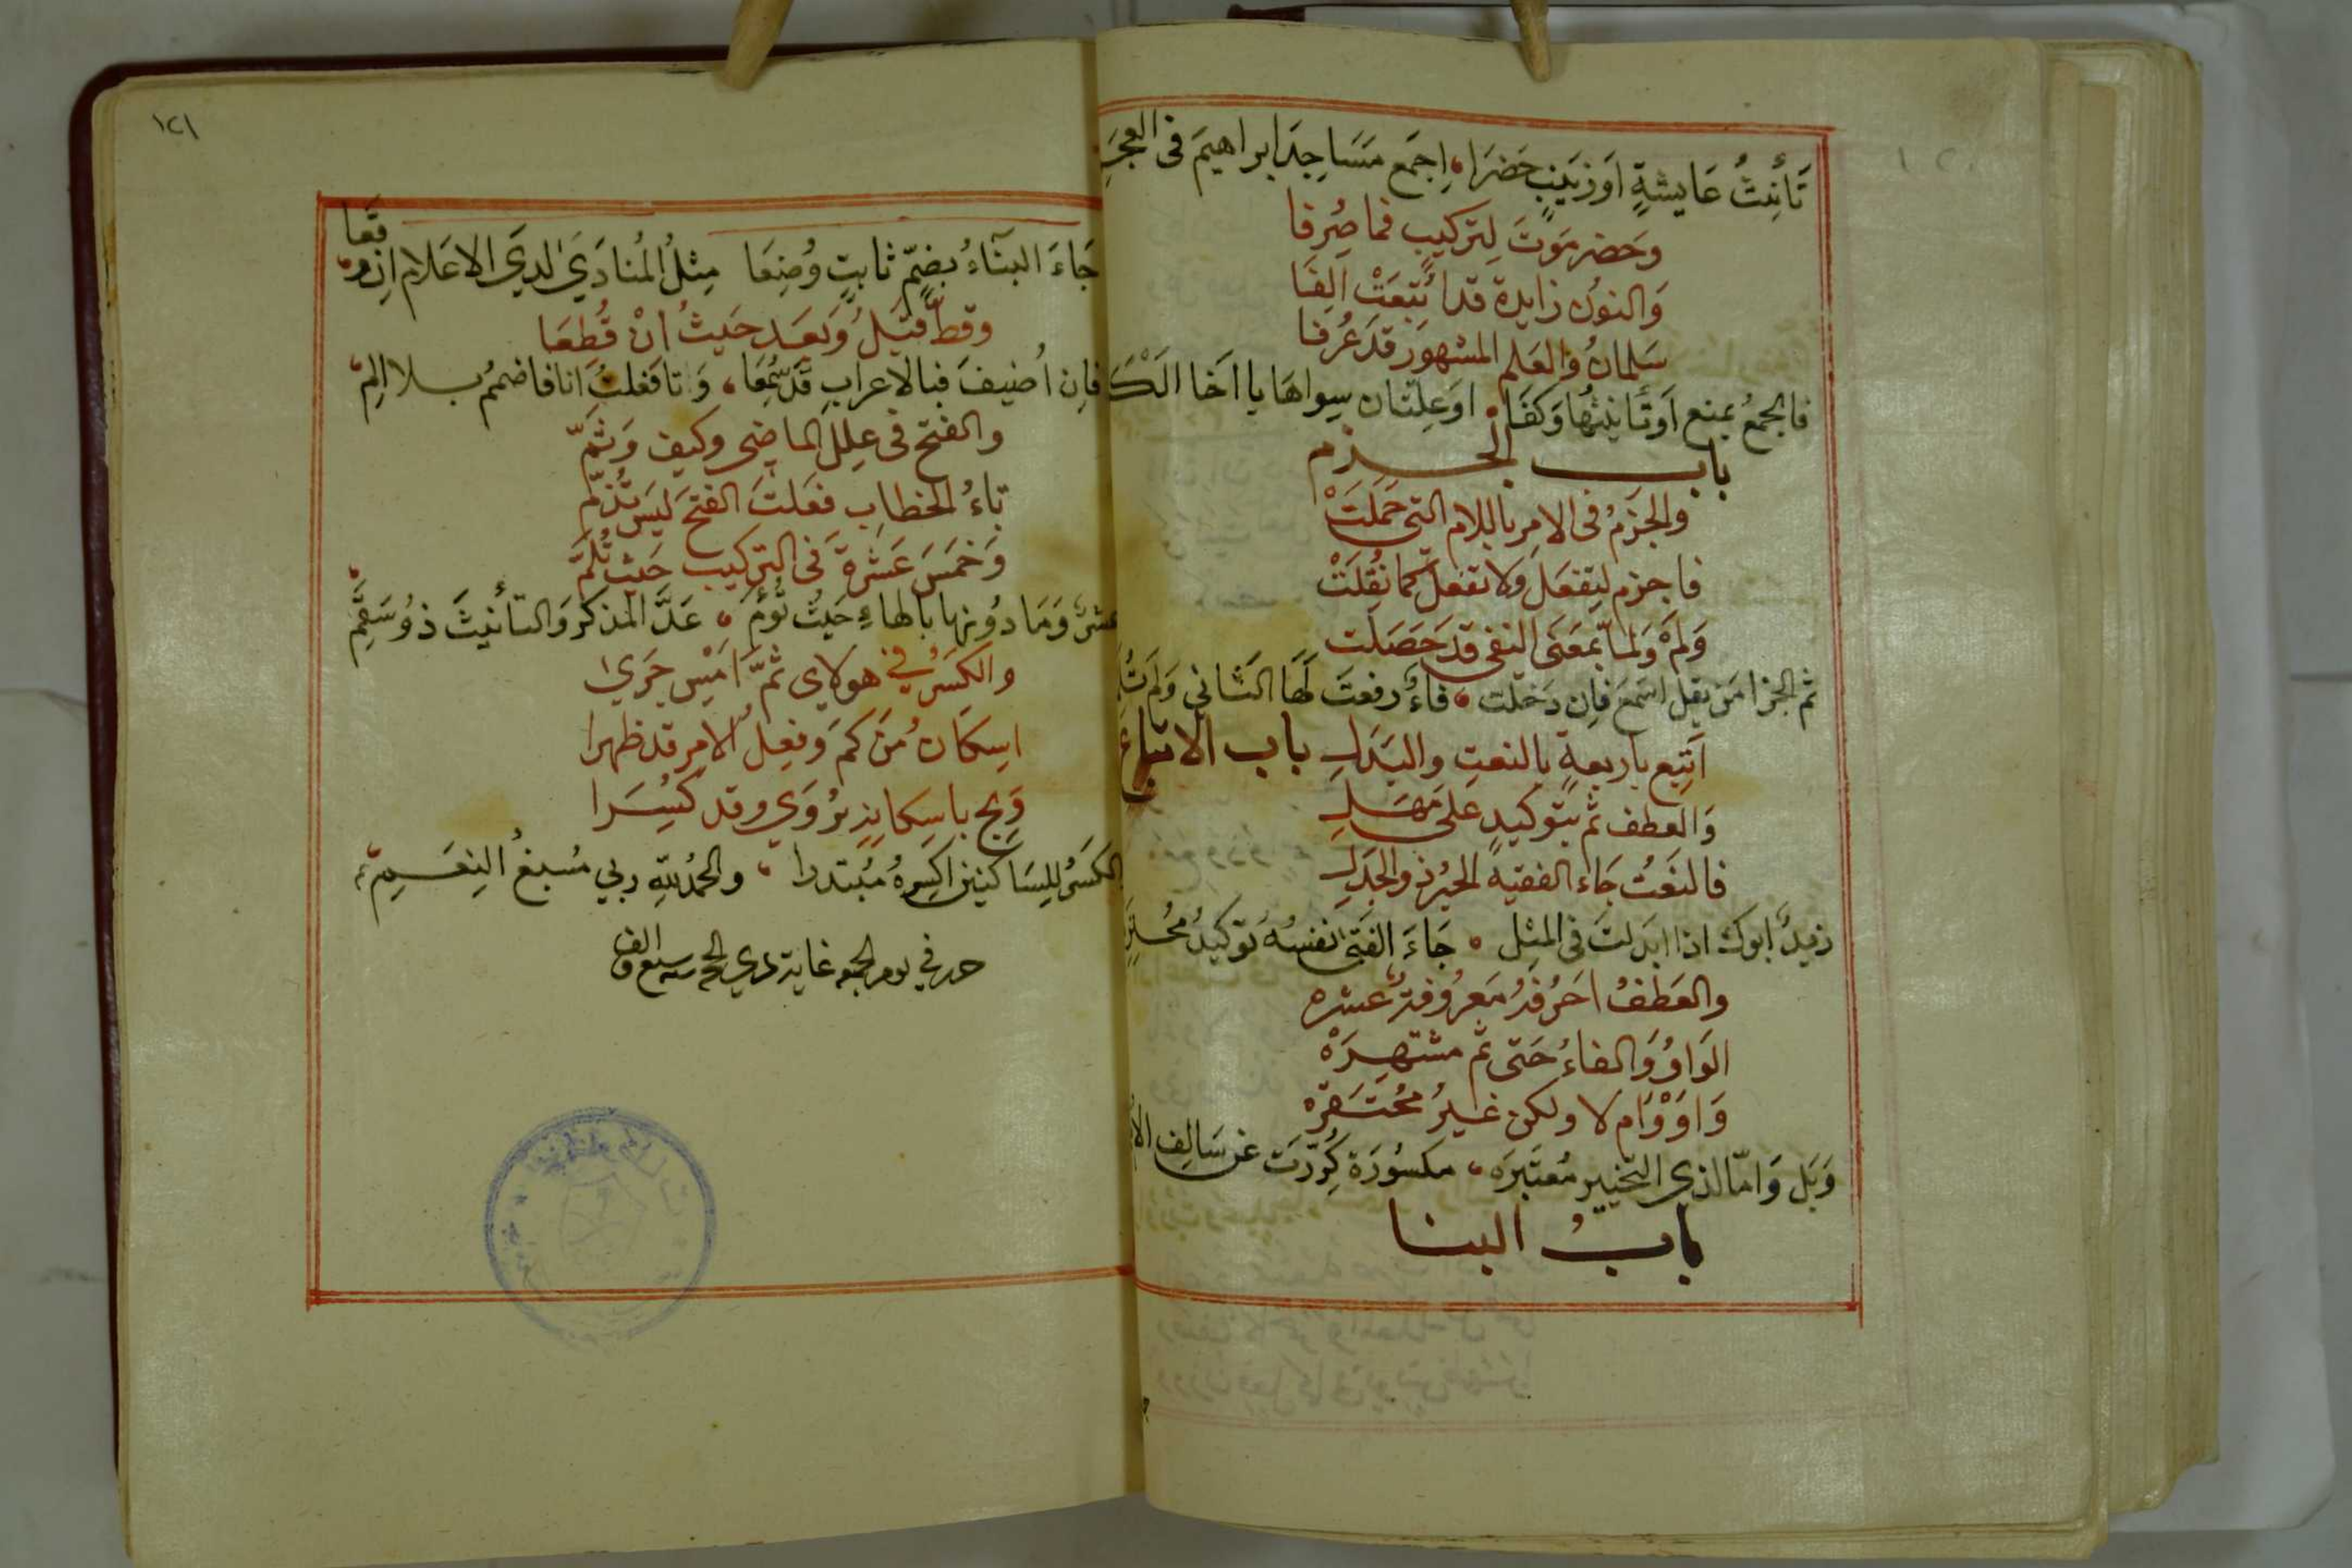 تَأنِيثُ عَايشةٍ اَوزَينبٍ حَضَرَا، اِجمَع مَسَاجِدَ ابراهيمَ فى العجَمِ
وحَضرمَوتَ لِتركيبٍ فما صُرِفا
وَالنونُ زايدة قد اُتبعَتْ الِفَا
سَلمانُ والعَلم المشهورَ قدَ عُرفا
فالجمعُ يمنع اَو تَأنيثُها وَكفَا، اوَعِلتان سِواهَا يا اَخا الكَرَ
باب الجزم
والجَزمُ فى الامرِ باللام التى حَمَلَتْ
فاجزم ليَفعَل ولا تفعل كما نُقِلَتْ
وَلمَ وَلمّا بمعَنَى النفى قدَ حَصَلَت
ثم الجزا مَن يقل اسَمع فَاِن دَخَلت، فاءٌ رفعتَ لَهَا الثاني وَلم تُلَمِ
اَتبِع بارَبعةٍ بالنعتِ والبَدَلِ باب الاتباع
وَالعطف ثم بتَوكيدٍ عَلى مَهَلِ
فالنَعتُ جَاءَ الفقيهُ الحَبرُ ذو الجَدَلِ
زيدٌ ابوك اذا ابدَلتَ فى المثِل، جَاءَ الفَتى نفسُهُ تَوكيدُ مُحترمِ
والعَطفُ احَرُفهُ مَعرُوفةٌ عَشره
الوَاوُ وَالفاءُ حَتى ثم مشتهِرَهْ
وَاوَ وْاَم لا ولكن غيرُ محُتَقرَه
وَبَل وَاِمّا لذي التخيير مُعتَبَره، مكسُورَة كُرِّرَت عَن سَالِف الاُمَمِ
بابُ البنا
١٢١
جَاءَ البنَاءُ بضَمٍّ ثابتٍ وُضِعَا مِثلُ المُنادَىَ لدِىَ الاعَلام اِن وقَعا
وقطُّ قبَلُ وَبعَد حَيثُ اِنْ قُطِعَا
فَاِن اُضيفَ فبالاعرابِ قدَ سُمِعَا، وَتا فعَلتُ انا فاضممُ بلا المِ،
والفتح فى عِللَ الماضى وكيف وَثمَّ
تاءُ الخطابِ فعَلتَ الفتحَ ليَسَ تُذمّ
وَخمَسَ عَشرةَ فى التركيب حَيث تُلَمّ
عشرٌ وَمَا دُونها بالهاءِ حَيثُ تَؤُمّ، عَدَّ المذكر وَالتأنيثَ ذوُ سَقَمِ،
والكَسرُ في هولاى ثمَّ امَسِ جَرَىا
اِسكانُ مَن كمَ وفِعلُ الامرِ قدَ ظهرا
وَبخ باِسكانِهِ يُروَي وقدَ كُسِرَا
الكسَرُ للِسَاكنين اكسِرهُ مُبتدرا، والحَمُدللّهِ ربي مُسبغُ النِعَمِ،
حرر في يوم الجمعه غاية ذي الحجه سنه سبع والف